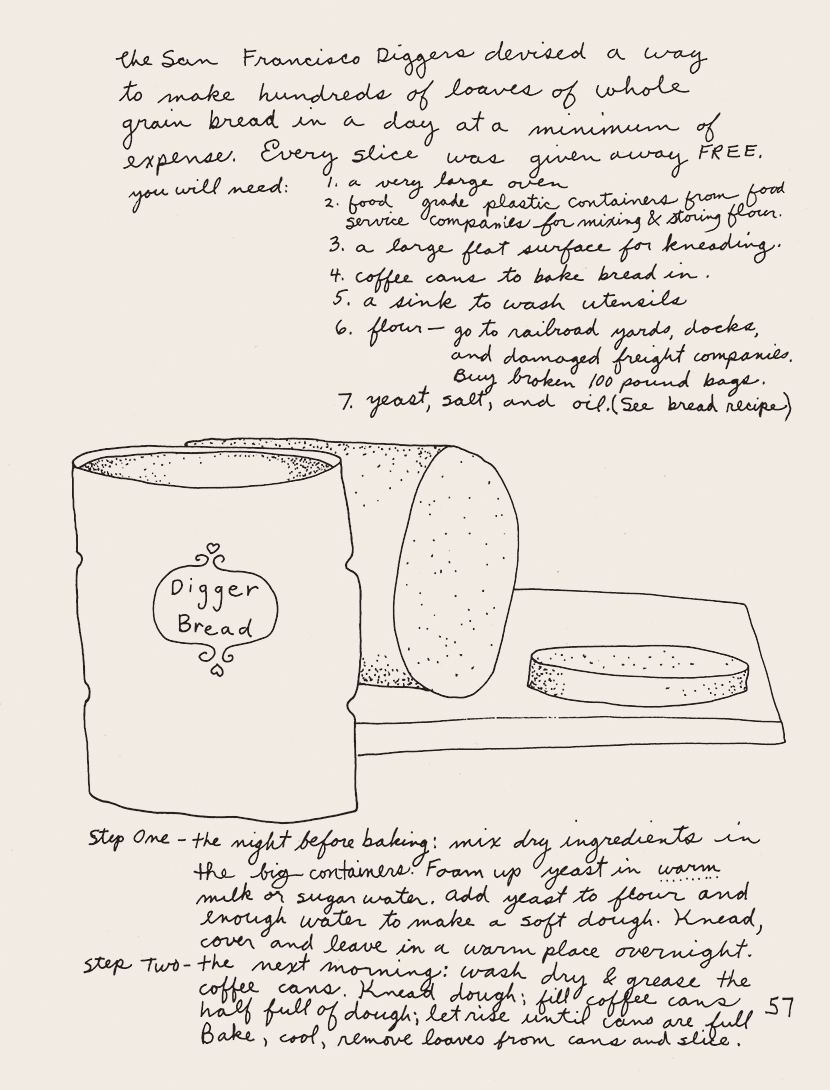 the San Francisco Diggers devised a way
to make hundreds of loaves of whole
grain bread in a day at a minimum of
expense. Every slice was given away FREE.
you will need: 1. a very large oven
2. food grade plastic containers from food
service companies for mixing & storing flour.
3. a large flat surface for kneading.
4. coffee cans to bake bread in.
5. a sink to wash utensils
6. flour — go to railroad yards, docks,
and damaged freight companies.
Buy broken 100 pound bags.
7. yeast, salt, and oil. (See bread recipe)
Digger
Bread
Step One - the night before baking: mix dry ingredients in
the big containers. Foam up yeast in warm
milk or sugar water. Add yeast to flour and
enough water to make a soft dough. Knead,
cover and leave in a warm place overnight.
Step Two - the next morning: wash dry & grease the
coffee cans. Knead dough; fill coffee cans
half full of dough; let rise until cans are full
Bake, cool, remove loaves from cans and slice.
57